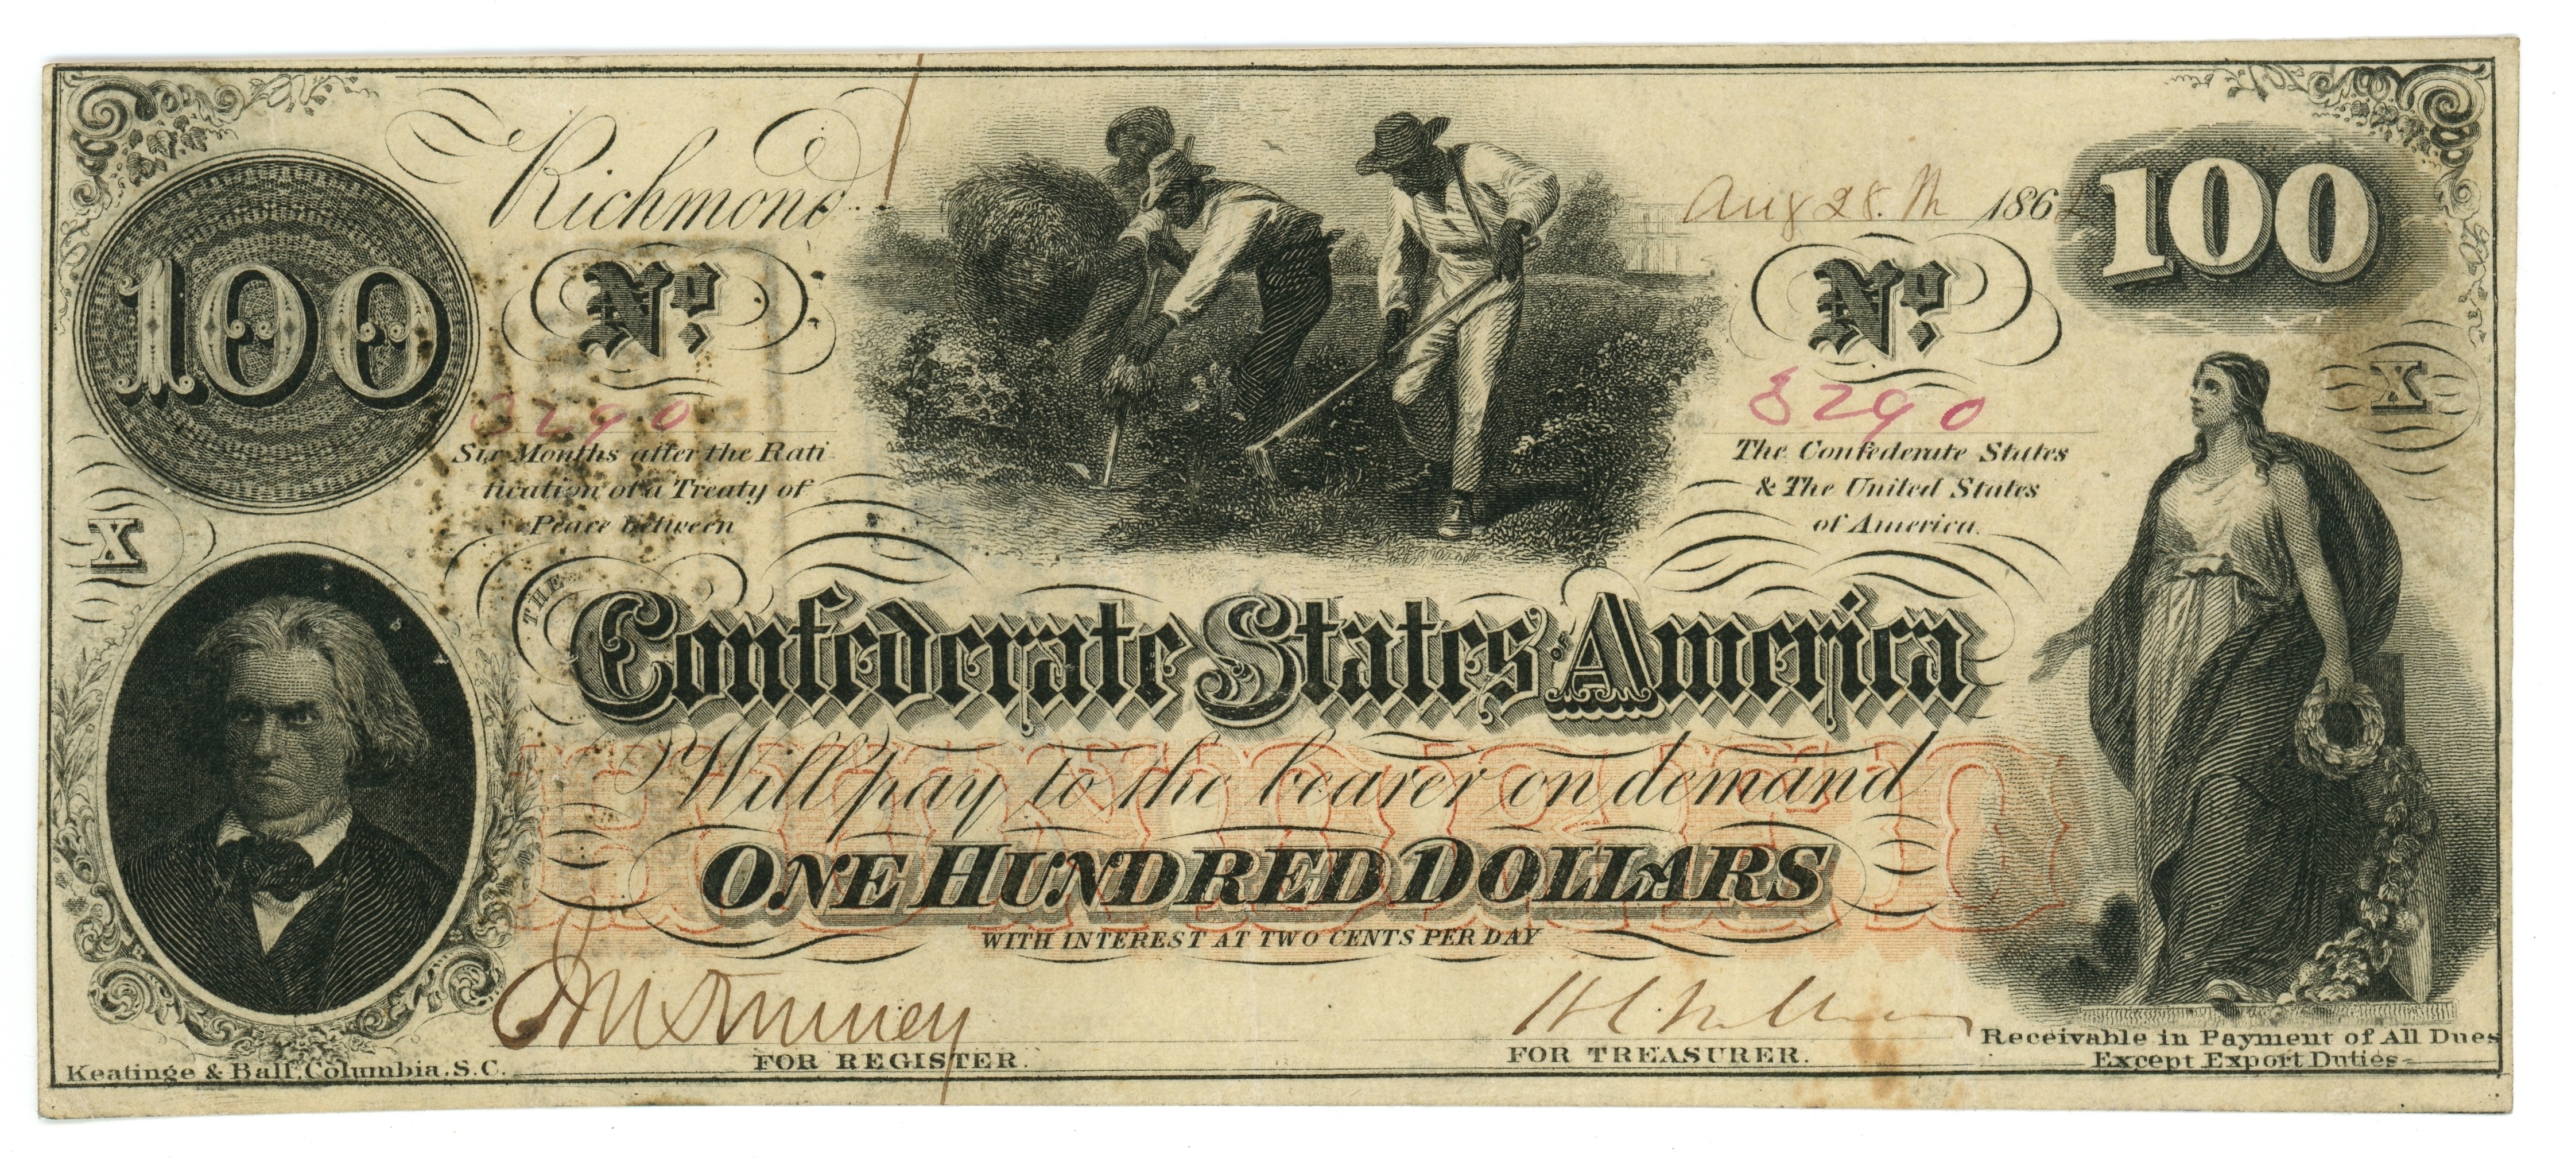 100
Richmond
Aug 28.th 1862
100
No.
No.
8290
8290
Six Months after the Rati
fication of a Treaty of
Peace between
The Confederate States
& The United States
of America.
X
X
THE Confederate States OF America
HUNDRED
Will pay to the bearer on demand
ONE HUNDRED DOLLARS
WITH INTEREST AT TWO CENTS PER DAY
FOR REGISTER.
FOR TREASURER.
Receivable in Payment of All Dues
Except Export Duties
Keatinge & Ball, Columbia, S.C.